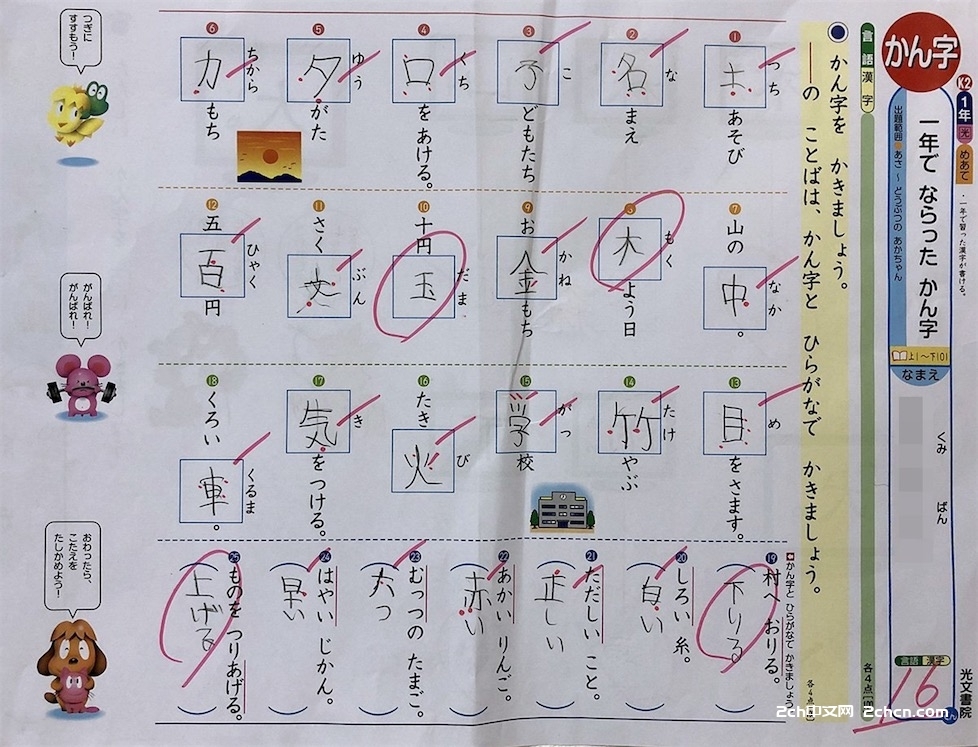 かん字
K2
1年 光
めあて
・一年で習った漢字が書ける。
一年で ならった かん字
出題範囲 あさ ~ どうぶつの あかちゃん
上1~下101
なまえ
くみ
ばん
言語 漢字
16
光文書院
言語 漢字
各4点
かん字を かきましょう。
――の ことばは、 かん字と ひらがなで かきましょう。
1 土 つち あそび
2 名 な まえ
3 子 こ どもたち
4 口 くち を あける。
5 夕 ゆう がた
6 力 ちから もち
7 山の 中 なか 。
木 もく よう日
9 お 金 かね もち
10 十円 玉 だま
11 さく 文 ぶん
12 五 百 ひゃく 円
13 目 め を さます。
14 竹 たけ やぶ
15 学 がっ 校
16 たき 火 び
17 気 き を つける。
18 くろい 車 くるま 。
かん字と ひらがなで かきましょう
各4点
19 村へ おりる。
下りる
20 しろい 糸。
白い
21 ただしい こと。
正しい
22 あかい りんご。
赤い
23 むっつの たまご。
つ
24 はやい じかん。
早い
25 ものを つりあげる。
上げる
つぎに すすもう!
がんばれ! がんばれ!
おわったら、 こたえを たしかめよう!
2ch中文网 2chcn.com